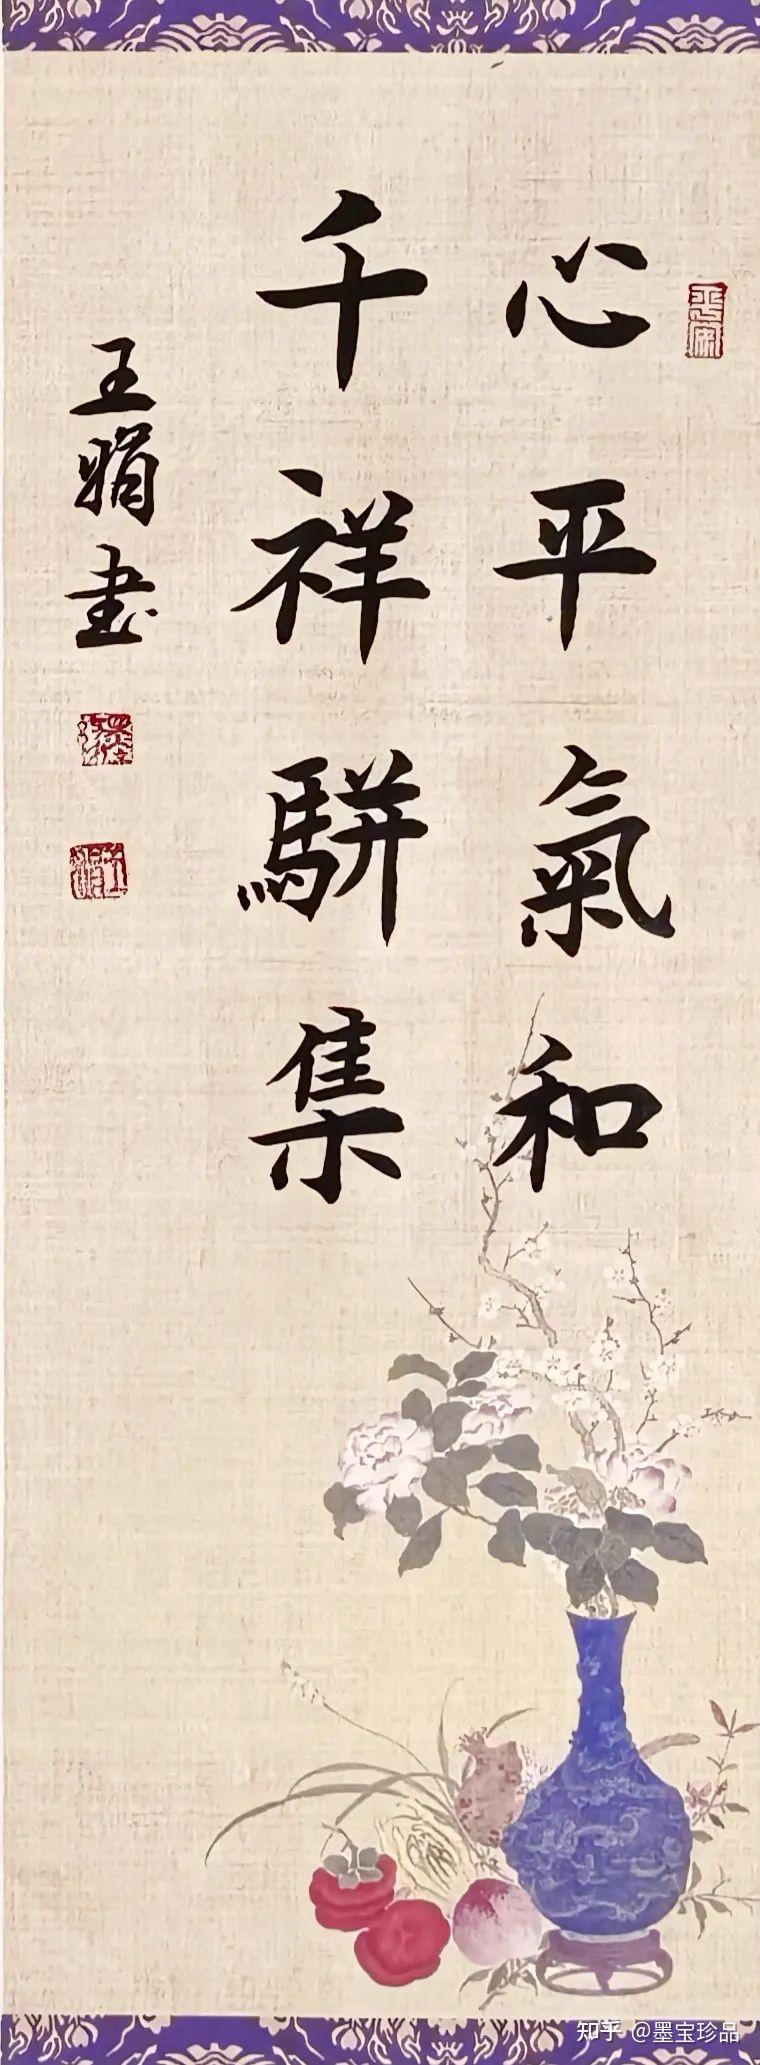 心平氣和
千祥駢集
王娟書
知乎 @墨宝珍品